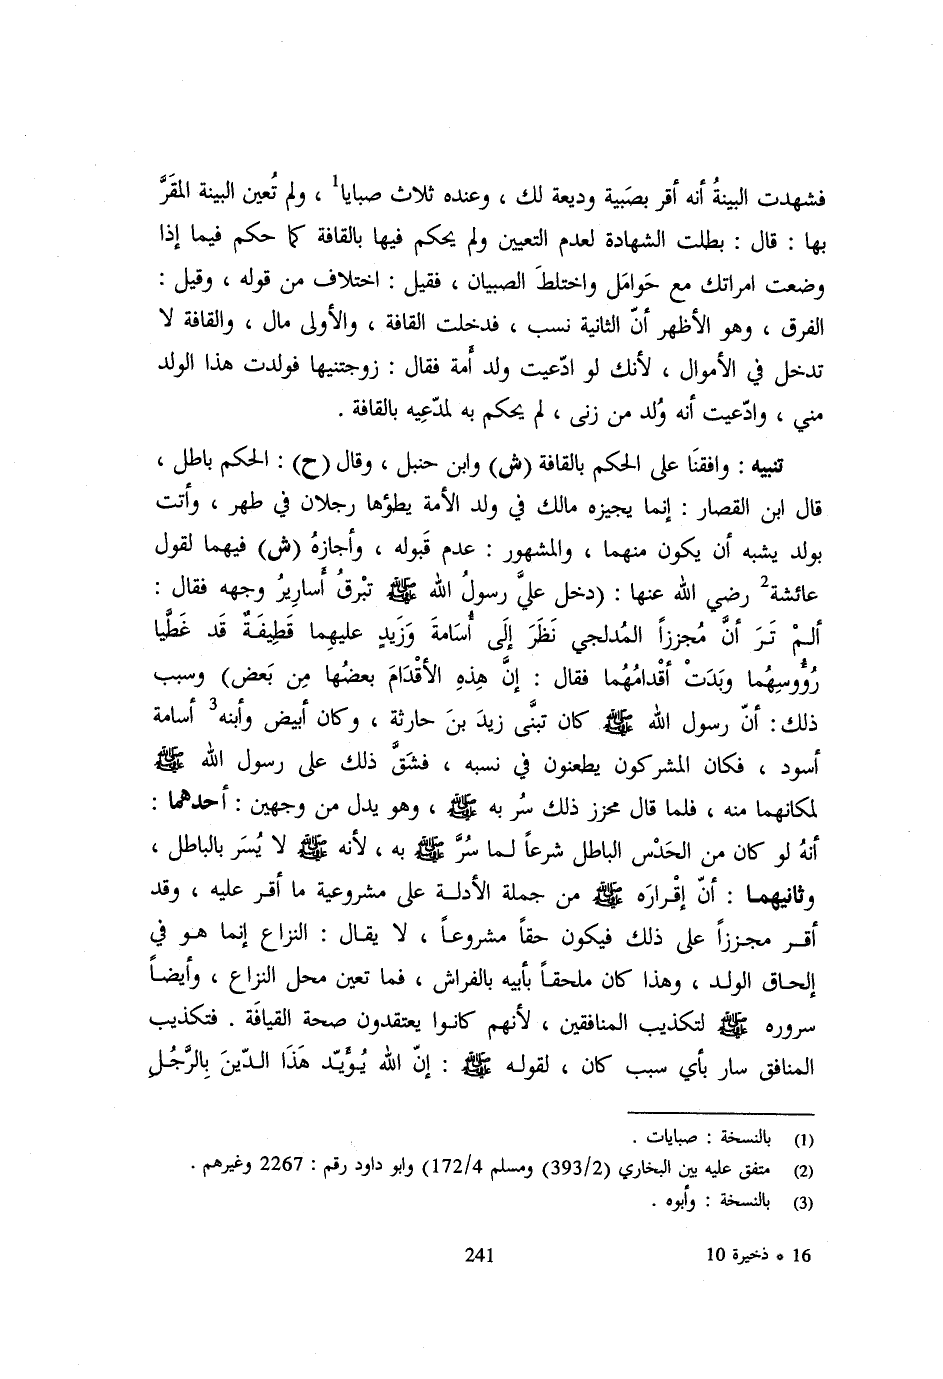 فشهدت البينةُ أنه أقر بصَبية وديعة لك ، وعنده ثلاث صبايا1 ، ولم تُعين البينة المقَرَّ
بها : قال : بطلت الشهادة لعدم التعيين ولم يحكم فيها بالقافة كما حكم فيما إذا
وضعت امراتك مع حَوامَل واختلطَ الصبيان ، فقيل : اختلاف من قوله ، وقيل :
الفرق ، وهو الأظهر أنّ الثانية نسب ، فدخلت القافة ، والأولى مال ، والقافة لا
تدخل في الأموال ، لأنك لو ادّعيت ولد أَمة فقال : زوجتنيها فولدت هذا الولد
مني ، وادّعيت أنه وُلد من زنى ، لم يحكم به لمدّعِيه بالقافة .
تنبيه : وافقنَا على الحكم بالقافة (ش) وابن حنبل ، وقال (ح) : الحكم باطل ،
قال ابن القصار : إنما يجيزه مالك في ولد الأمة يطؤها رجلان في طهر ، وأتت
بولد يشبه أن يكون منهما ، والمشهور : عدم قَبوله ، وأجازهُ (ش) فيهما لقول
عائشة2 رضي الله عنها : (دخل عليَّ رسولُ الله ﷺ تبْرقُ أَساريرُ وجهه فقال :
ألمْ تَرَ أنَّ مُجززاً المُدلجي نَظَرَ إلَى أُسَامةَ وَزَيدٍ عليهِما قَطِيفَةٌ قَد غَطَّيا
رُؤُوسِهُما وبَدَتْ أقْدامُهُما فقال : إنَّ هذِهِ الأقْدَامَ بعضُها مِن بَعض) وسبب
ذلك: أنّ رسول الله ﷺ كان تبنَّى زيدَ بنَ حارثة ، وكان أبيض وأبنه3 أسامة
أسود ، فكان المشركون يطعنون في نسبه ، فشَقَّ ذلك على رسول الله ﷺ
لمكانهما منه ، فلما قال مجزز ذلك سُر به ﷺ ، وهو يدل من وجهين : أحدهما :
أنهُ لو كان من الحَدْس الباطل شرعاً لـما سُرَّ ﷺ به ، لأنه ﷺ لا يُسَر بالباطل ،
وثانيهمـا : أنّ إقْـرارَه ﷺ من جملة الأدلـة على مشروعية ما أقـر عليه ، وقد
أقـر مجـززاً على ذلك فيكون حقاً مشروعـاً ، لا يقـال : النزاع إنما هـو في
إلحـاق الولـد ، وهذا كان ملحقـاً بأبيه بالفراش ، فما تعين محل النزاع ، وأيضـاً
سروره ﷺ لتكذيب المنافقين ، لأنهم كانـوا يعتقدون صحة القيافَة . فتكذيب
المنافق سار بأي سبب كان ، لقولـه ﷺ : إنّ الله يُـؤَيّـد هَذَا الـدّينَ بِالرَّجُـلِ
(1) بالنسخة : صبايات .
(2) متفق عليه بين البخاري (393/2) ومسلم 172/4) وابو داود رقم : 2267 وغيرهم .
(3) بالنسخة : وأبوه .
16 * ذخيرة 10
241